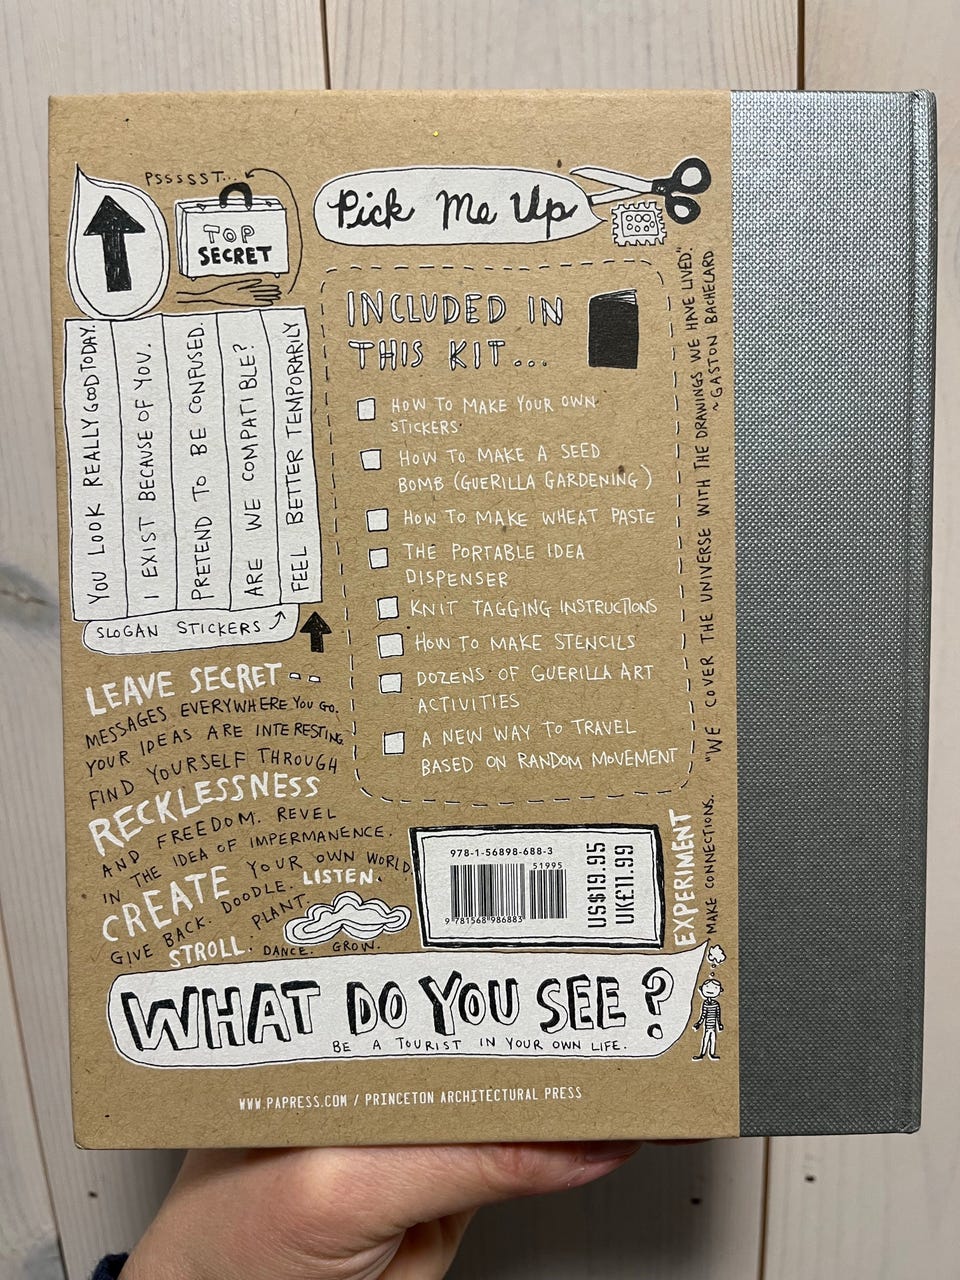 PSSSSST...
TOP
SECRET
Pick Me Up
INCLUDED IN
THIS KIT...
HOW TO MAKE YOUR OWN
STICKERS
HOW TO MAKE A SEED
BOMB (GUERILLA GARDENING)
HOW TO MAKE WHEAT PASTE
THE PORTABLE IDEA
DISPENSER
KNIT TAGGING INSTRUCTIONS
HOW TO MAKE STENCILS
DOZENS OF GUERILLA ART
ACTIVITIES
A NEW WAY TO TRAVEL
BASED ON RANDOM MOVEMENT
YOU LOOK REALLY GOOD TODAY.
I EXIST BECAUSE OF YOU.
PRETEND TO BE CONFUSED.
ARE WE COMPATIBLE?
FEEL BETTER TEMPORARILY
SLOGAN STICKERS
LEAVE SECRET
MESSAGES EVERYWHERE YOU GO.
YOUR IDEAS ARE INTERESTING.
FIND YOURSELF THROUGH
RECKLESSNESS
AND FREEDOM. REVEL
IN THE IDEA OF IMPERMANENCE.
CREATE YOUR OWN WORLD
GIVE BACK. DOODLE. LISTEN.
STROLL. PLANT.
DANCE. GROW.
978-1-56898-688-3
51995
9 781568 986883
US$19.95
UK£11.99
EXPERIMENT
MAKE CONNECTIONS.
"WE COVER THE UNIVERSE WITH THE DRAWINGS WE HAVE LIVED".
~GASTON BACHELARD
WHAT DO YOU SEE?
BE A TOURIST IN YOUR OWN LIFE.
WWW.PAPRESS.COM / PRINCETON ARCHITECTURAL PRESS